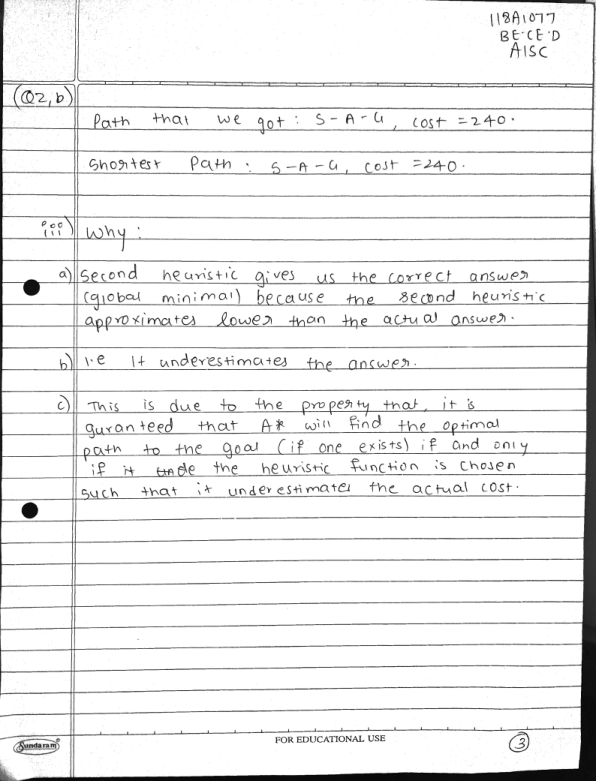 118A1077
BE-CE-D
AISC
(Q2,b)
Path that we got : S-A-G, cost = 240.
Shortest Path : S-A-G, cost = 240.
iii) Why :
a) Second heuristic gives us the correct answer
(global minimal) because the second heuristic
approximates lower than the actual answer.
b) i.e It underestimates the answer.
c) This is due to the property that, it is
guranteed that A* will find the optimal
path to the goal (if one exists) if and only
if the heuristic function is chosen
such that it underestimates the actual cost.
Sundaram
FOR EDUCATIONAL USE
3